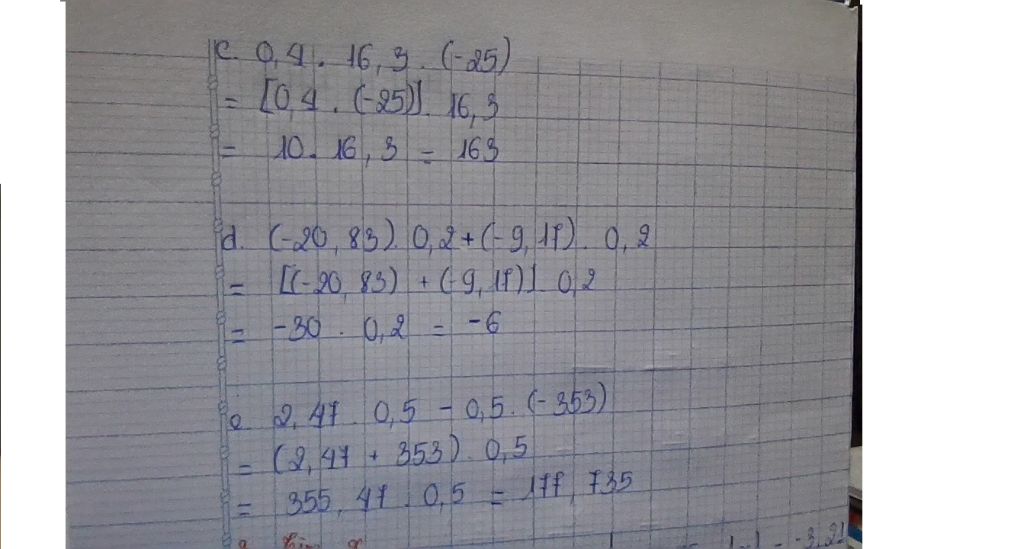 c. 0,4 . 16,3 . (-25)
= [0,4 . (-25)] . 16,3
= 10 . 16,3 = 163
d. (-20,83) . 0,2 + (-9,17) . 0,2
= [(-20,83) + (-9,17)] . 0,2
= -30 . 0,2 = -6
e. 2,47 . 0,5 - 0,5 . (-353)
= (2,47 + 353) . 0,5
= 355,47 . 0,5 = 177,735